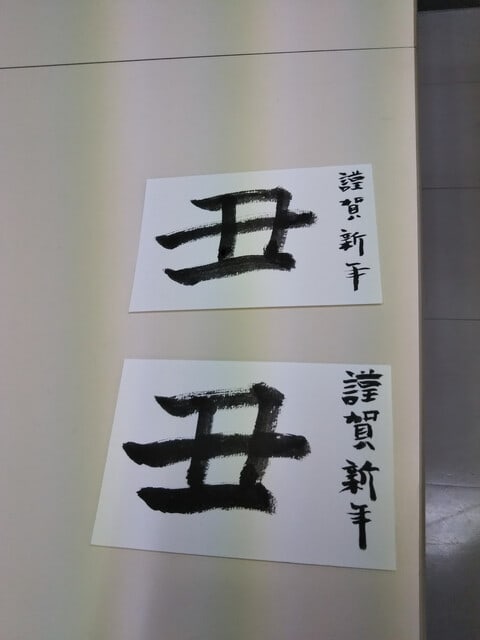 謹賀新年
丑
謹賀新年
丑